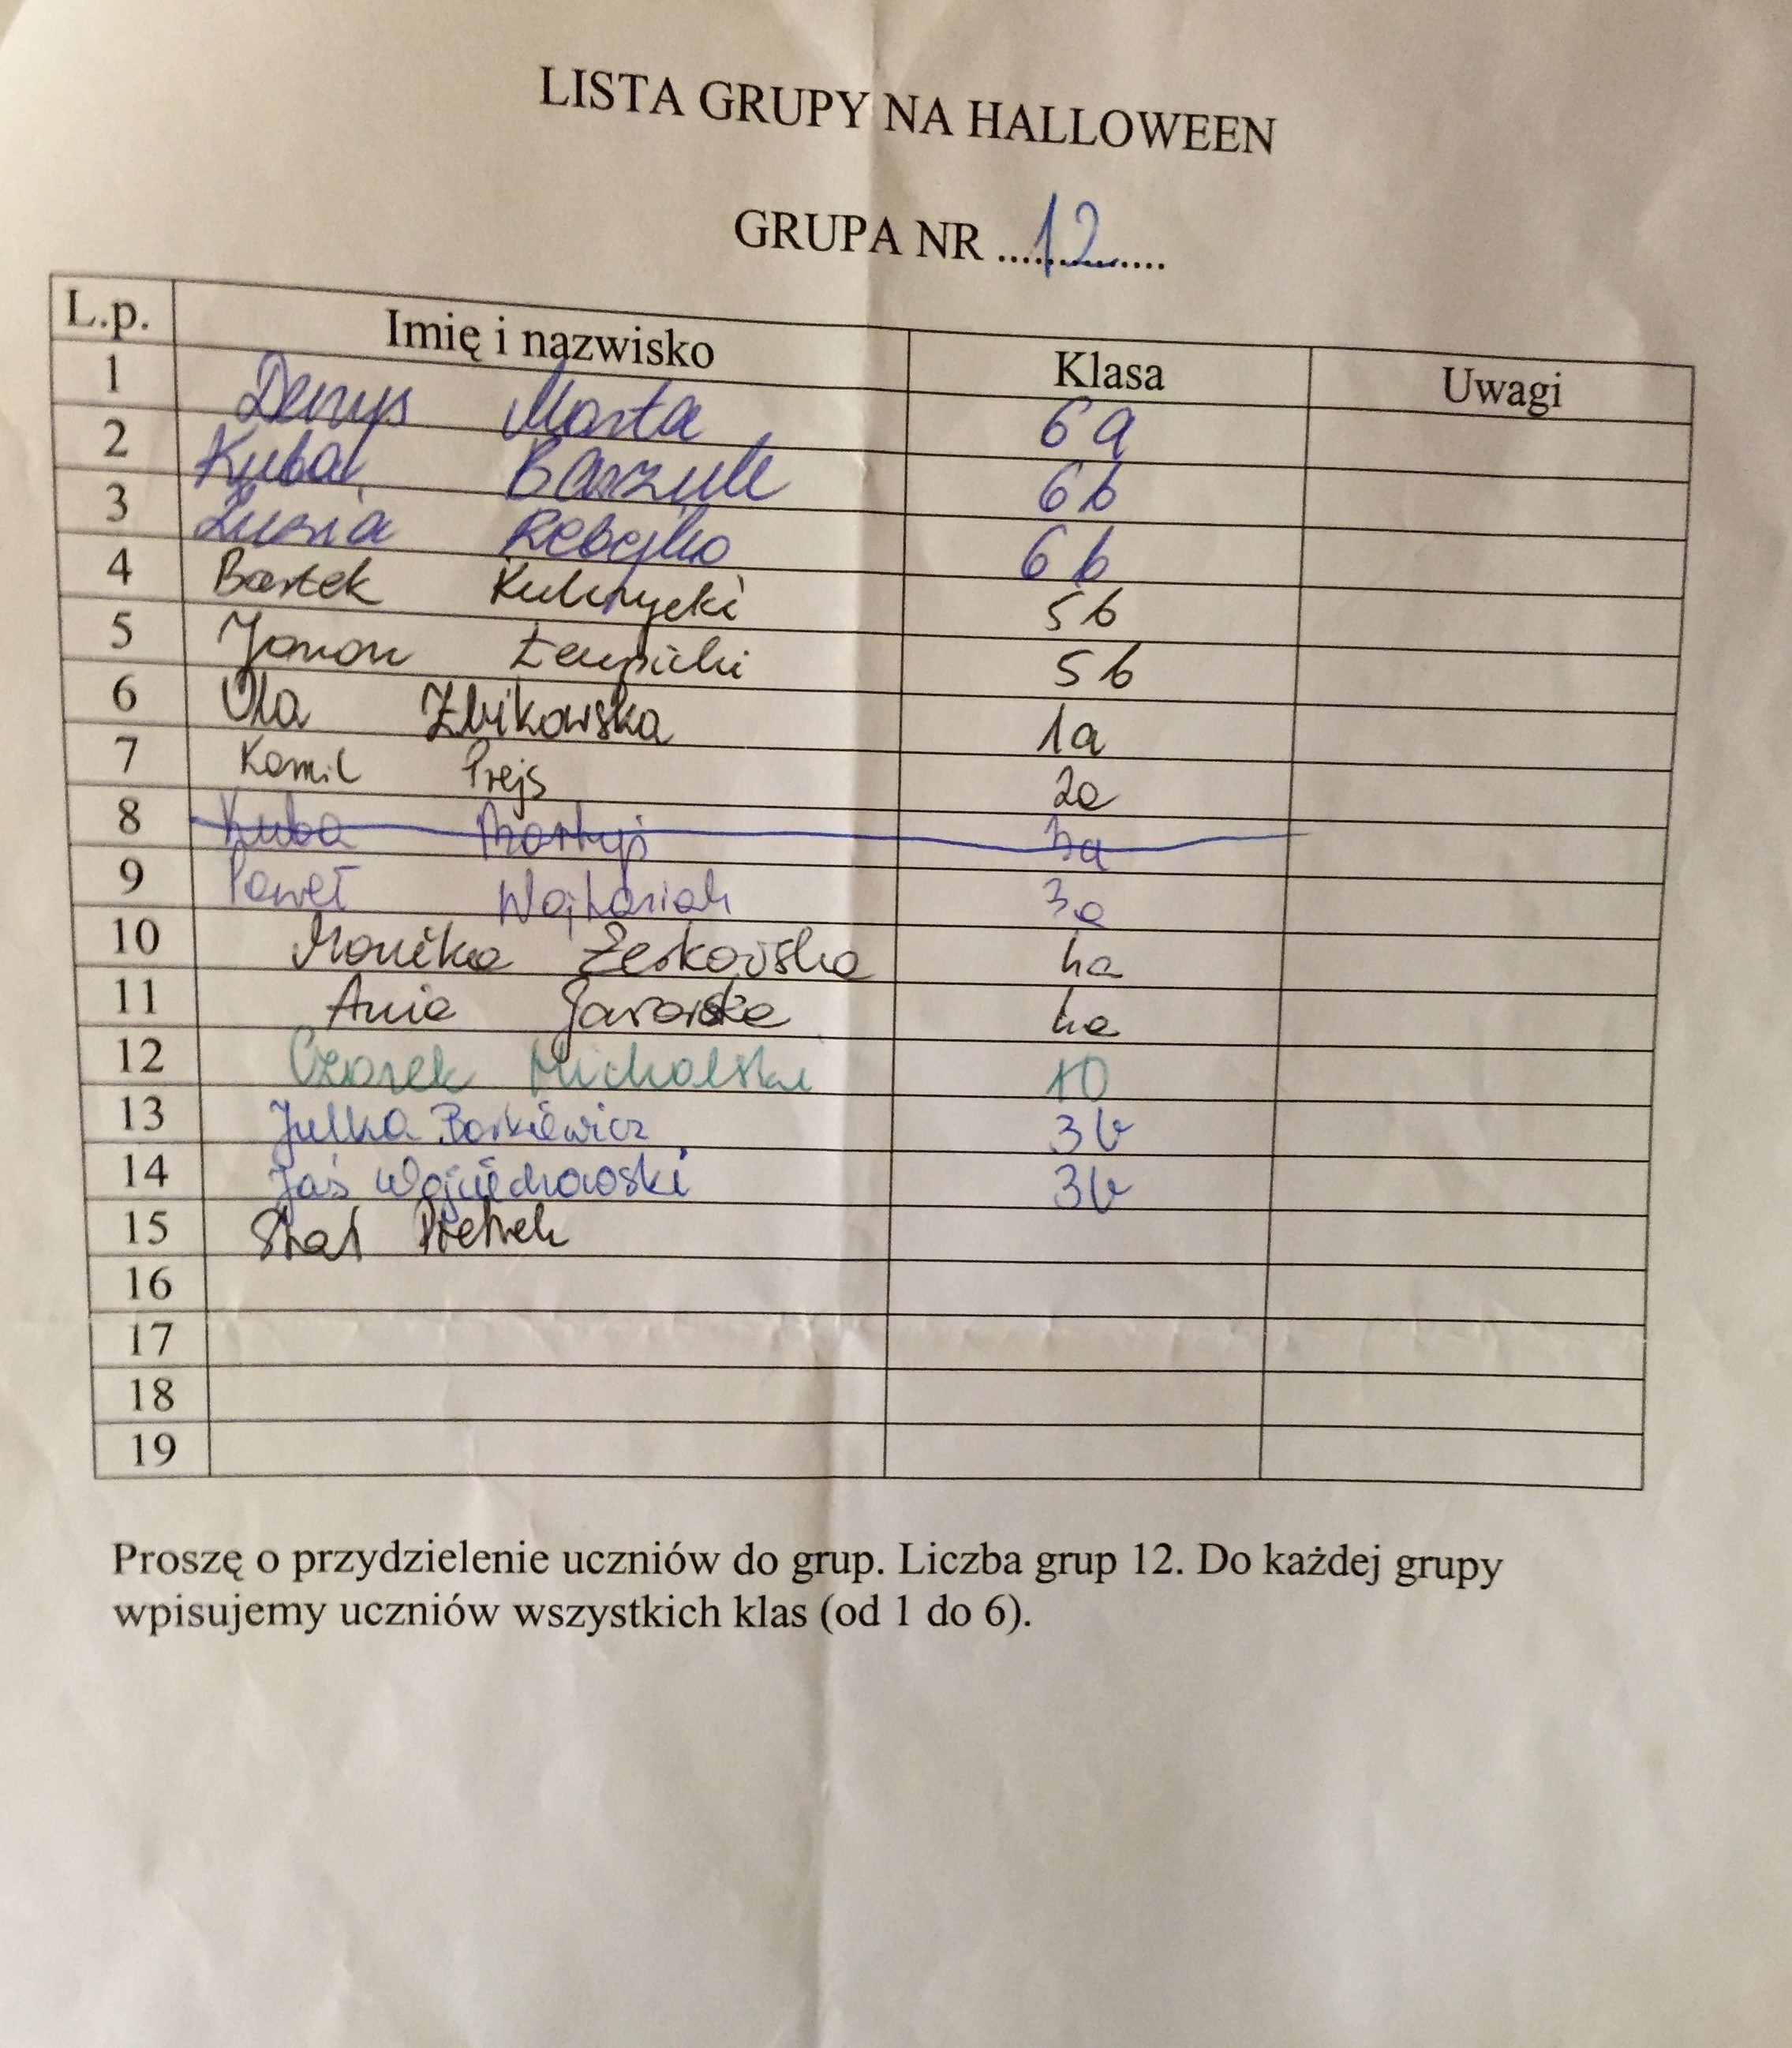 LISTA GRUPY NA HALLOWEEN
GRUPA NR ....12....
L.p. Imię i nazwisko Klasa Uwagi
1 Denys Marta 6a
2 Kuba 6b
3 Zuzia 6b
4 Bartek 5b
5 5b
6 Ola Żbikowska 1a
7 Kamil Prejs 2a
8 Kuba 3a
9 Paweł 3a
10 Monika Żerkowska 4a
11 Ania 4a
12 Czarek Michalski
13 Julka Borkiewicz 3b
14 Jaś Wojciechowski 3b
15
16
17
18
19
Proszę o przydzielenie uczniów do grup. Liczba grup 12. Do każdej grupy
wpisujemy uczniów wszystkich klas (od 1 do 6).